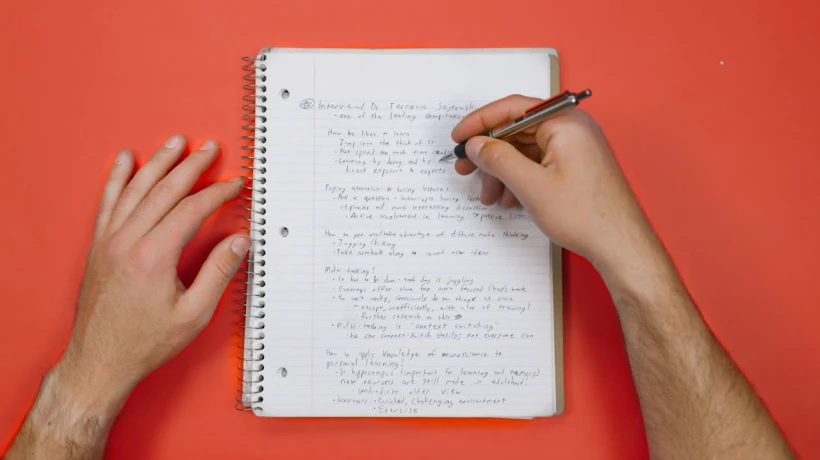 Interview Dr. Terrence Sejnowski
- one of the leading computational
How he likes to learn:
- Jump into the thick of it
- Not spend too much time
- Learning by doing and by
direct exposure to experts
Paying attention to boring lecture?
- Ask a question - interrupts boring
replaces w/ more interesting discussion
- Active involvement in learning > passive
How to take advantage of diffuse mode thinking
- Jogging/hiking
- Take notebook along to record new ideas
Multi-tasking?
- each day is juggling
- Evenings offer time for more focused work
- You can't really consciously do two things at once
- except, inefficiently, with a lot of training!
- further research on this
- Multi-tasking is "context switching"
- he can context-switch easily, not everyone can
How to apply knowledge of neuroscience to
personal learning?
- hippocampus (important for learning and memory)
new neurons are still made in adulthood!
- contradicts older view
- Enriched, challenging environment
- Exercise